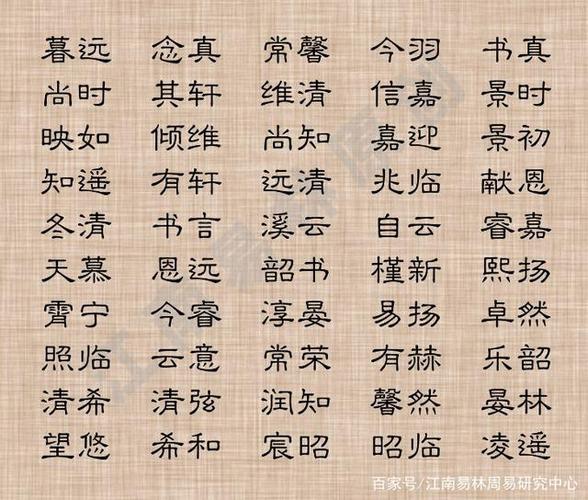 暮远 念真 常馨 今羽 书真
尚时 其轩 维清 信嘉 景时
映如 倾维 尚知 嘉迎 景初
知遥 有轩 远清 兆临 献恩
冬清 书言 溪云 自云 睿嘉
天慕 恩远 韶书 槿新 熙扬
霄宁 今睿 淳晏 易扬 卓然
照临 云意 常荣 有赫 乐韶
清希 清弦 润知 馨然 晏林
望悠 希和 宸昭 昭临 凌遥
百家号/江南易林周易研究中心